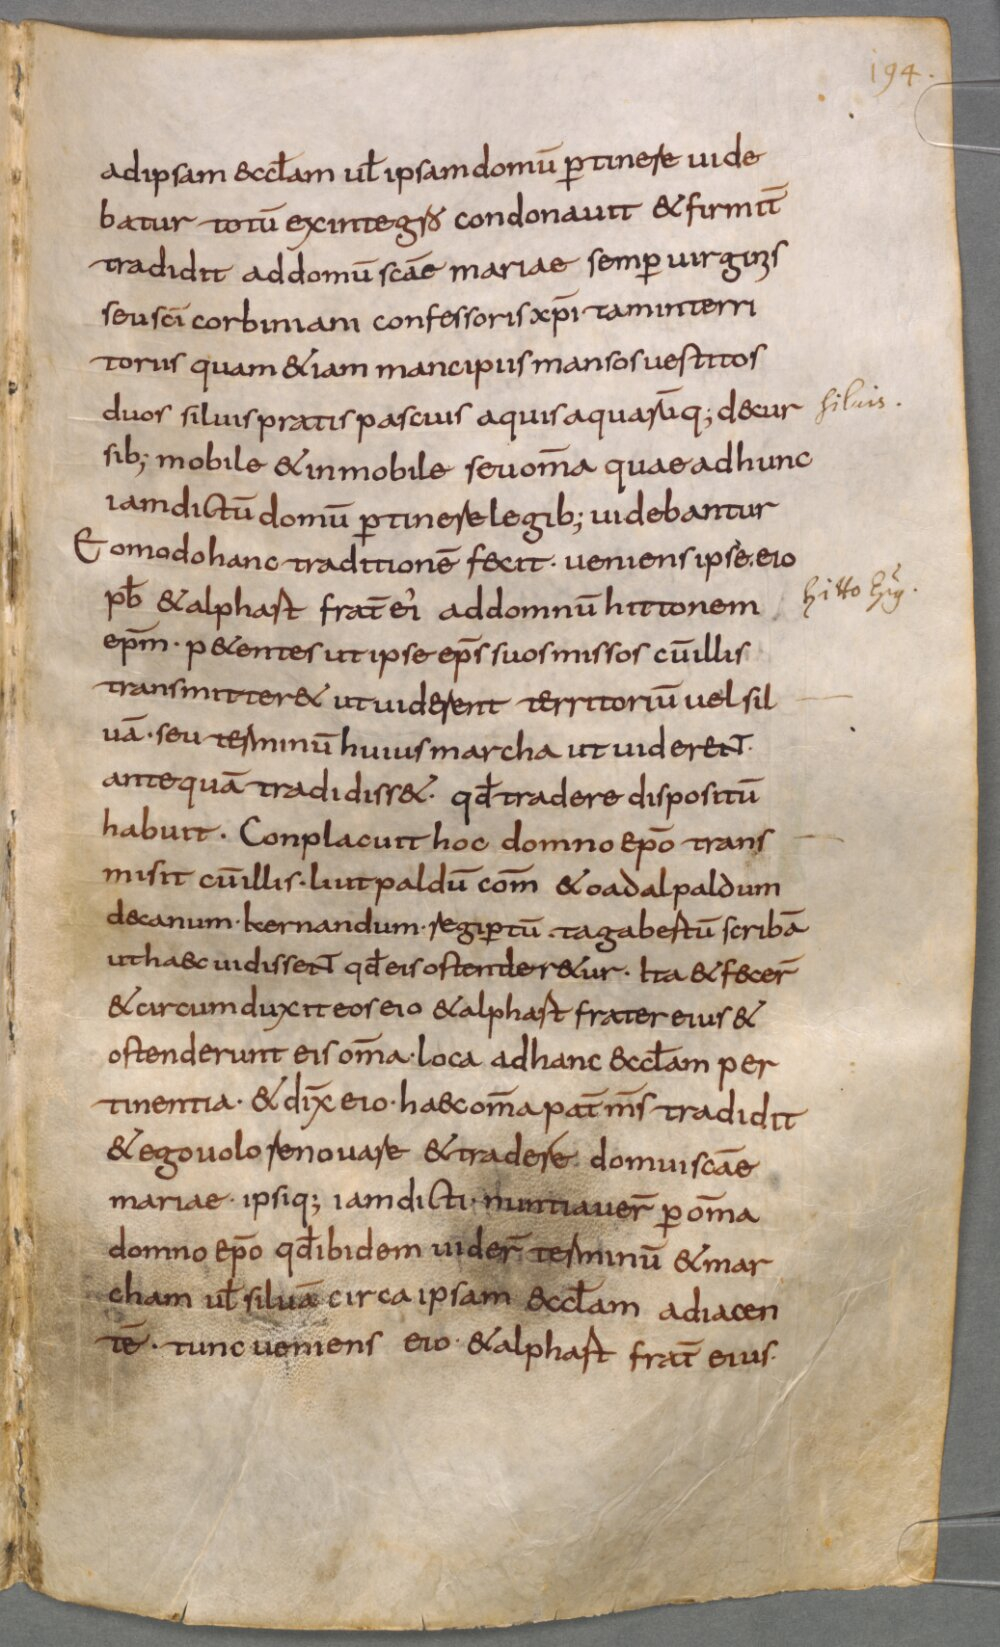 194.
ad ipsam &ccłam uł ipsam domū ptinere uide
batur totū ex integro condonauit & firmit̄
tradidit ad domū scāe mariae semp uirginis
seu scī corbiniani confessoris xp̄i tam in terri
toriis quam &iam mancipiis mansos uestitos
duos siluis pratis pascuis aquis aquarūq; decur
siluis.
sib; mobile & inmobile seu om̄a quae ad hunc
iam dictū domū ptinere legib; uidebantur
Eomodo hanc traditionē fecit· ueniens ipse eio
pb̄ & alphart frat̄ ei' ad domnū hittonem
hitto Ep̄.
ep̄m· p&entes ut ipse ep̄s suos missos cū illis
transmitter& ut uiderent territoriū uel sil
uā· seu terminū huius marcha ut uiderent·
antequā tradidiss&· qd̄ tradere dispositū
habuit· Conplacuit hoc domno ep̄o trans
misit cū illis· liutpaldū com̄ & oadalpaldum
decanum· kernandum· regiptū· tagabertū scribā
ut haec uidissent qd̄ eis ostender&ur· Ita & fecer̄
& circumduxit eos eio & alphart frater eius &
ostenderunt eis om̄a· loca ad hanc &ccłam per
tinentia· & dix̄ eio· haec om̄a pat̄ m̄s tradidit
& ego uolo renouare & tradere domui scāe
mariae· ipsiq; iam dicti· nuntiauer̄ p om̄a
domno ep̄o qd̄ ibidem uider̄ terminū & mar
cham uł siluā circa ipsam &ccłam adiacen
tē· tunc ueniens eio· & alphart frat̄ eius·